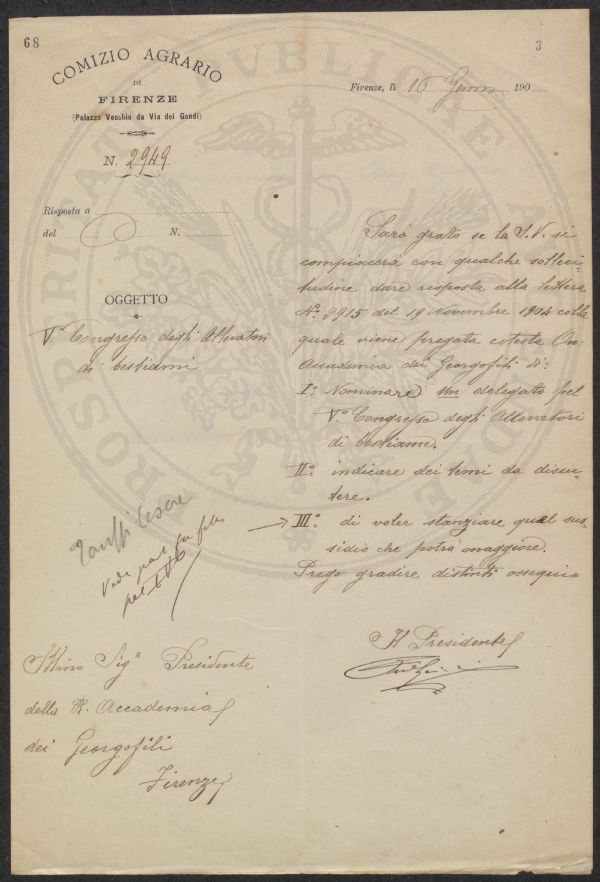 68
3
COMIZIO AGRARIO
DI
FIRENZE
(Palazzo Vecchio da Via dei Gondi)
N. 2949
Firenze, li 16 190
Risposta a
del N.
OGGETTO
V° Congresso degli Allevatori
di bestiami
Sarò grato se la S.V. si
compiacerà con qualche solleci-
tudine dare risposta alla lettera
N° 2915 del 19 Novembre 1904 colla
quale viene pregata cotesta On.
Accademia dei Georgofili di:
I° Nominare un delegato pel
V° Congresso degli Allevatori
di bestiame.
II° indicare dei temi da discu-
tere.
III° di voler stanziare quel sus-
sidio che potrà maggiore.
Prego gradire distinti ossequi
Il Presidente
Illmo Sigr Presidente
della R. Accademia
dei Georgofili
Firenze
PROSPERITATI PUBLICAE AUGENDAE